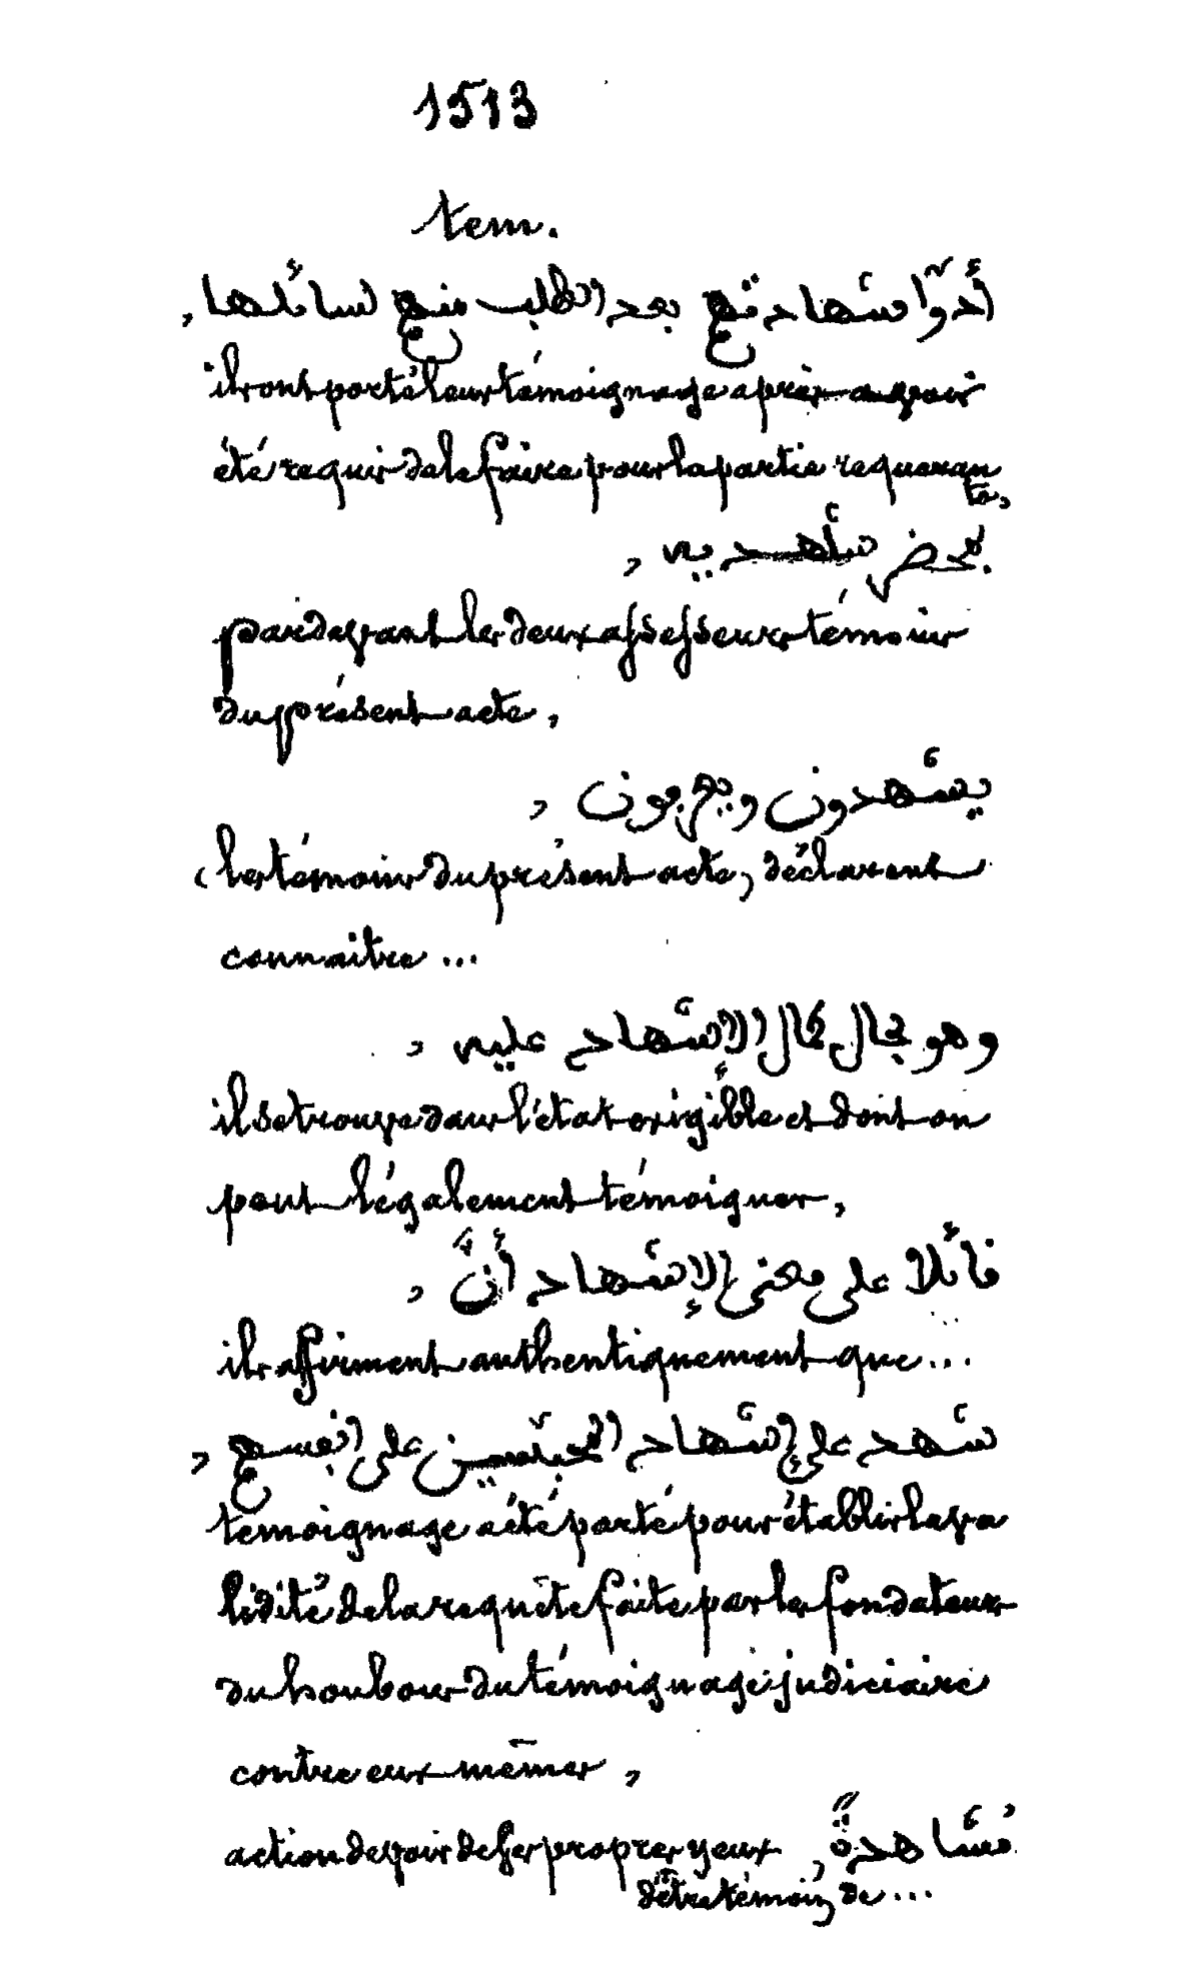 1513
tem.
أدّوا شهادتهم بعد الطلب منهم لسائلها,
ils ont porté leur témoignage après avoir
été requis de le faire pour la partie requeran
te,
بمحضر شاهديه,
par devant les deux assesseurs témoins
du présent acte,
يشهدون ويعرفون,
(les témoins du présent acte) déclarent
connaitre ...
وهو بحال كمال الإشهاد عليه,
il se trouve dans l'état exigible et dont on
peut légalement témoigner,
قائلا على معنى الإشهاد أنّ,
ils affirment authentiquement que ...
شهد على إشهاد المحبّسين على انفسهم,
temoignage a été porté pour établir la va
lidité de la requête faite par les fondateurs
du houbous du témoignage judiciaire
contre eux mêmes,
مُشاهدةً,
action de voir de ses propres yeux
d'être témoin de ...